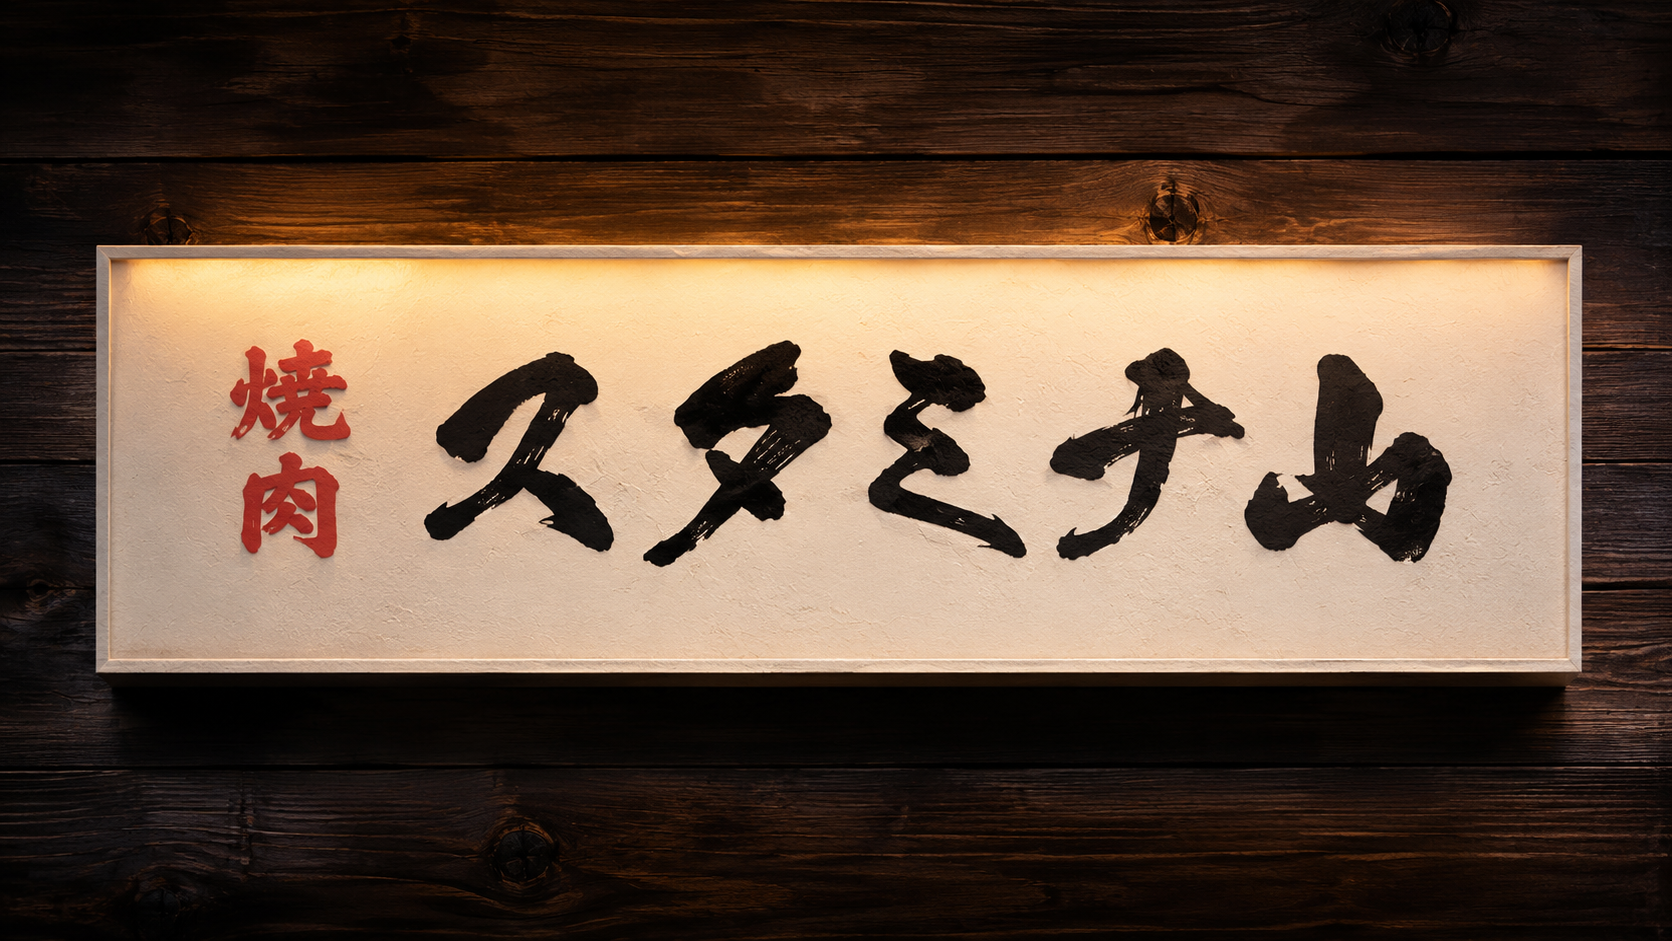 焼肉
スタミナ山